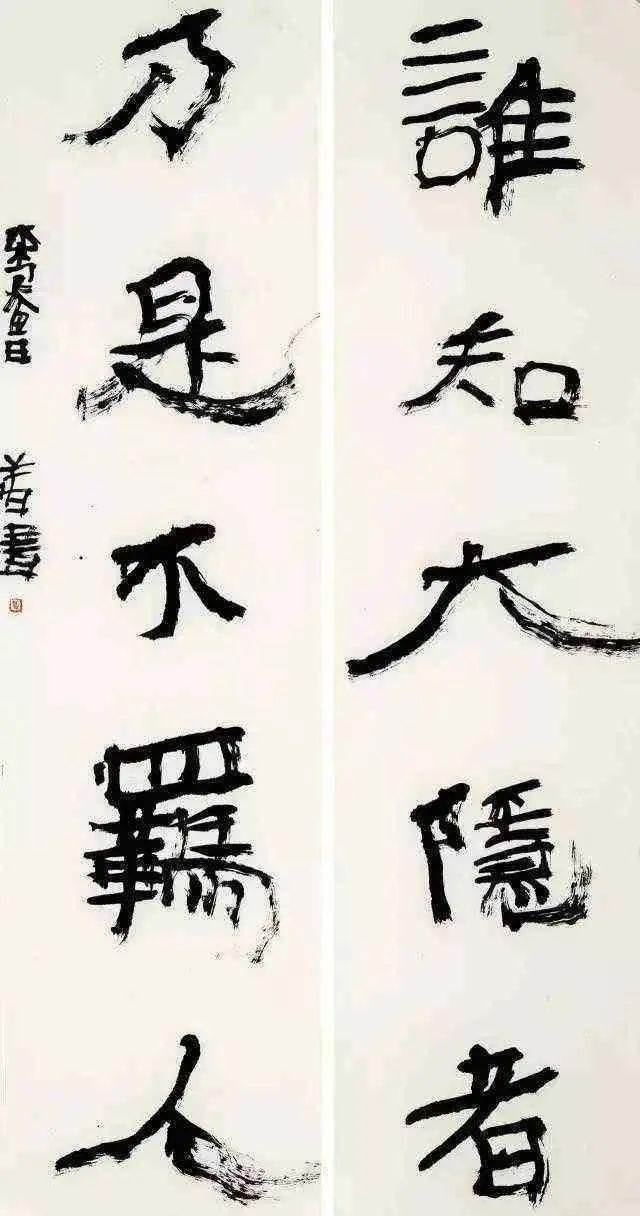 誰知大隱者
乃是不羈人
善書